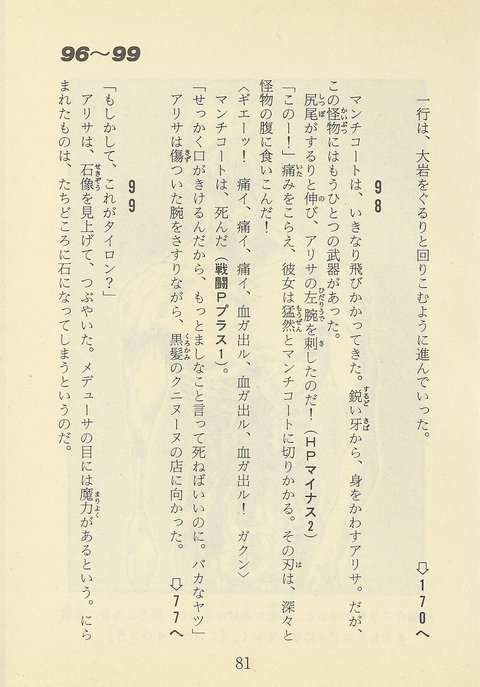 96〜99
一行は、大岩をぐるりと回りこむように進んでいった。
⇩170へ
98
マンチコートは、いきなり飛びかかってきた。鋭い牙から、身をかわすアリサ。だが、
この怪物にはもうひとつの武器があった。
尻尾がするりと伸び、アリサの左腕を刺したのだ！（HPマイナス2）
「このー！」痛みをこらえ、彼女は猛然とマンチコートに切りかかる。その刃は、深々と
怪物の腹に食いこんだ！
〈ギエーッ！　痛イ、痛イ、痛イ、血ガ出ル、血ガ出ル、血ガ出ル！　ガクン〉
マンチコートは、死んだ（戦闘Pプラス1）。
「せっかく口がきけるんだから、もっとましなこと言って死ねばいいのに。バカなヤツ」
アリサは傷ついた腕をさすりながら、黒髪のクニヌーヌの店に向かった。
⇩77へ
99
「もしかして、これがタイロン？」
アリサは、石像を見上げて、つぶやいた。メデューサの目には魔力があるという。にら
まれたものは、たちどころに石になってしまうというのだ。
81